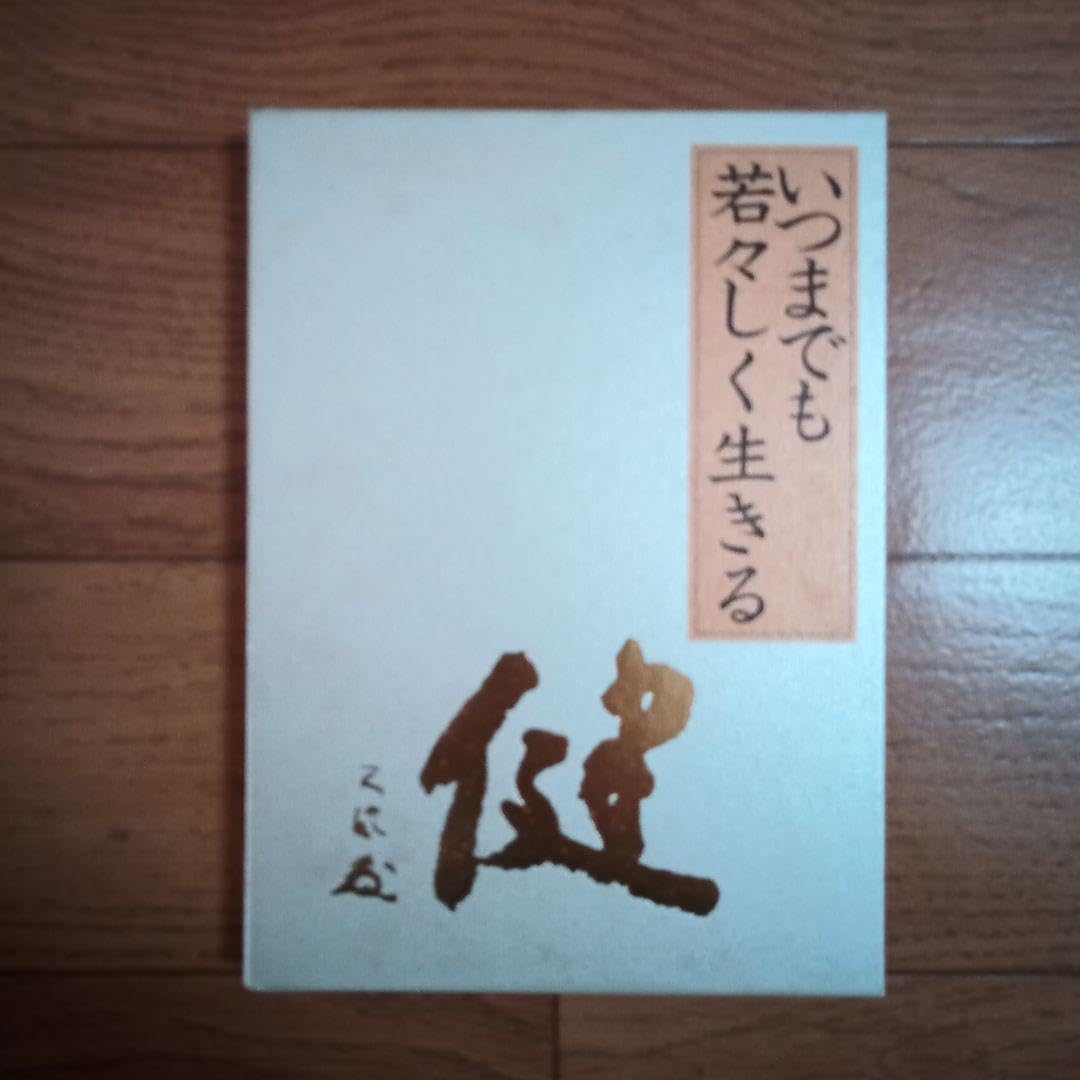 いつまでも
若々しく生きる
健